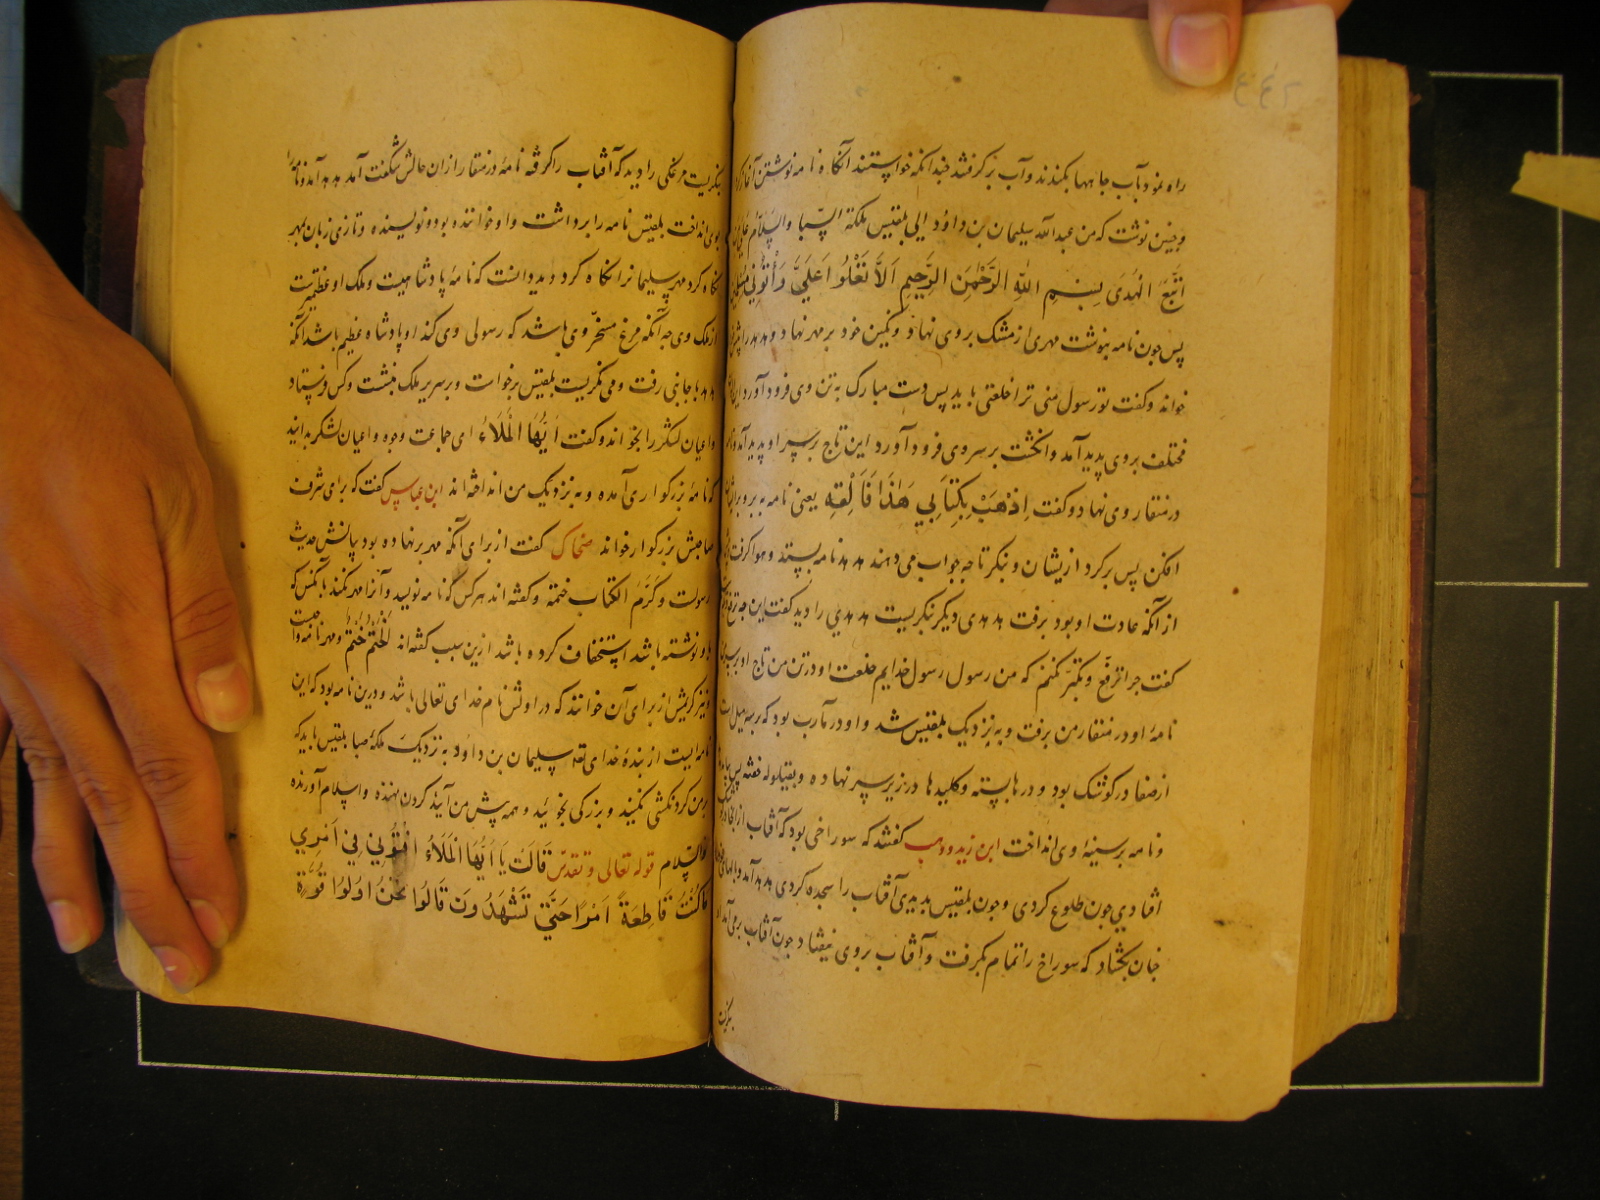 راه نمود بآب جانها بکندند و آب برگرفتند چندانکه خواستند آنگاه نامه نوشتن آغاز کرد
و چنین نوشت که من عبد الله سلیمان بن داؤد الی بلقیس ملکة السبا والسلام علی من
اتَّبَعَ الْهُدَى بِسْمِ اللهِ الرَّحْمٰنِ الرَّحِيمِ اَلاَّ تَعْلُوا عَلَيَّ وَأْتُونِي مسلمین
پس چون نامه بنوشت مهری از مشک بروی نهاد و نگین خود بر مهر نهاد و هدهد را
خواند و گفت تو رسول منی ترا خلعتی باید پس دست مبارک به تن وی فرود آورد این
مختلف بروی پدید آمد و انگشت بر سر وی فرود آورد این تاج بر سر او پدید آمد و نامه
در منقار وی نهاد و گفت اِذْهَبْ بِكِتَابِي هٰذَا فَاَلْقِهِ یعنی نامه ببر و بر ایشان
افکن پس برگرد ازیشان و بنگر تا چه جواب می دهند هدهد نامه بستد و هوا گرفت
از آنکه عادت او بود برفت هدهدی دیگر نگریست هدهدی را دید گفت این چه ترفع
گفت چرا ترفّع و تکبّر نکنم که من رسول رسول خدایم خلعت او در تن من تاج او بر سر
نامهٔ او در منقار من برفت و به نزدیک بلقیس شد و او در مآرب بود که بر سه میل است
از صنعا در کوشک بود و درها بسته و کلیدها در زیر سر نهاده و بقیلوله خفته پس
و نامه بر سینهٔ وی انداخت ابن زید و وهب گفتند که سوراخی بود که آفتاب از آنجا در
افتادی چون طلوع کردی و چون بلقیس بدیدی آفتاب را سجده کردی هدهد آمد و
چنان بگشاد که سوراخ را تمام بگرفت و آفتاب بروی نیفتاد چون آفتاب برمی آمد
بنگریست
بنگریست مرغکی را دید که آفتاب را گرفته نامه در منقار از آن حالش شگفت آمد هدهد آمد و نامه
بوی انداخت بلقیس نامه را برداشت و او خواننده بود و نویسنده و تازی زبان مهر
نگاه کرد مهر سلیمان را نگاه کرد و بدانست که نامهٔ پادشاهیست و ملک او عظیمتر است
از ملک وی چه آنکه مرغ مسخّر وی باشد که رسولی وی کند او پادشاه عظیم باشد آنگه
هدهد با جانبی رفت و می نگریست بلقیس برخواست و بر سریر ملک بنشست و کس فرستاد
و اعیان لشکر را بخواند و گفت اَیُّهَا الْمَلَاءُ ای جماعت وجوه و اعیان لشکر بدانید
که نامهٔ بزرگواری آمده و به نزدیک من انداخته اند ابن عباس گفت که برای شرف
صاحبش بزرگوار خواند ضحاک گفت از برای آنکه مهر بر نهاده بود بیانش حدیث
رسولست و کَرَمُ الکتاب ختمه و گفته اند هر کس که نامه نویسد و آنرا مهر نکند با آنکس که
باو نوشته باشد استخفاف کرده باشد ازین سبب گفته اند الختم ختم و مهر نامه
و نیز کریمش از برای آن خوانند که در اولش نام خدای تعالی باشد و درین نامه بود که این
نامه ایست از بندهٔ خدای تعه سلیمان بن داؤد به نزدیک ملکهٔ صبا بلقیس باید که
بر من گردنکشی نکنید و بزرگی نجوئید و همه پیش من آئید گردن نهنده و اسلام آورنده
والسّلام قوله تعالی و تقدّس قَالَتْ یَا اَیُّهَا الْمَلَاءُ اَفْتُونِي فِي اَمْرِي
مَا كُنْتُ قَاطِعَةً اَمْرًا حَتّٰى تَشْهَدُونَ قَالُوا نَحْنُ اُولُوا قُوَّةٍ